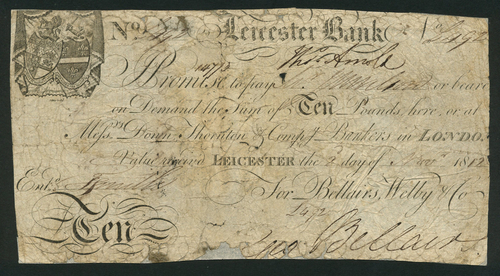 No. Leicester Bank
Thos. Arnold
I Promise to pay or bearer
on Demand the Sum of Ten Pounds, here, or at
Messrs Down Thornton & Compy Bankers in LONDON
Value received LEICESTER the day of Novr 1812
For Bellairs, Welby & Co
Entd.
Ten
Bellairs